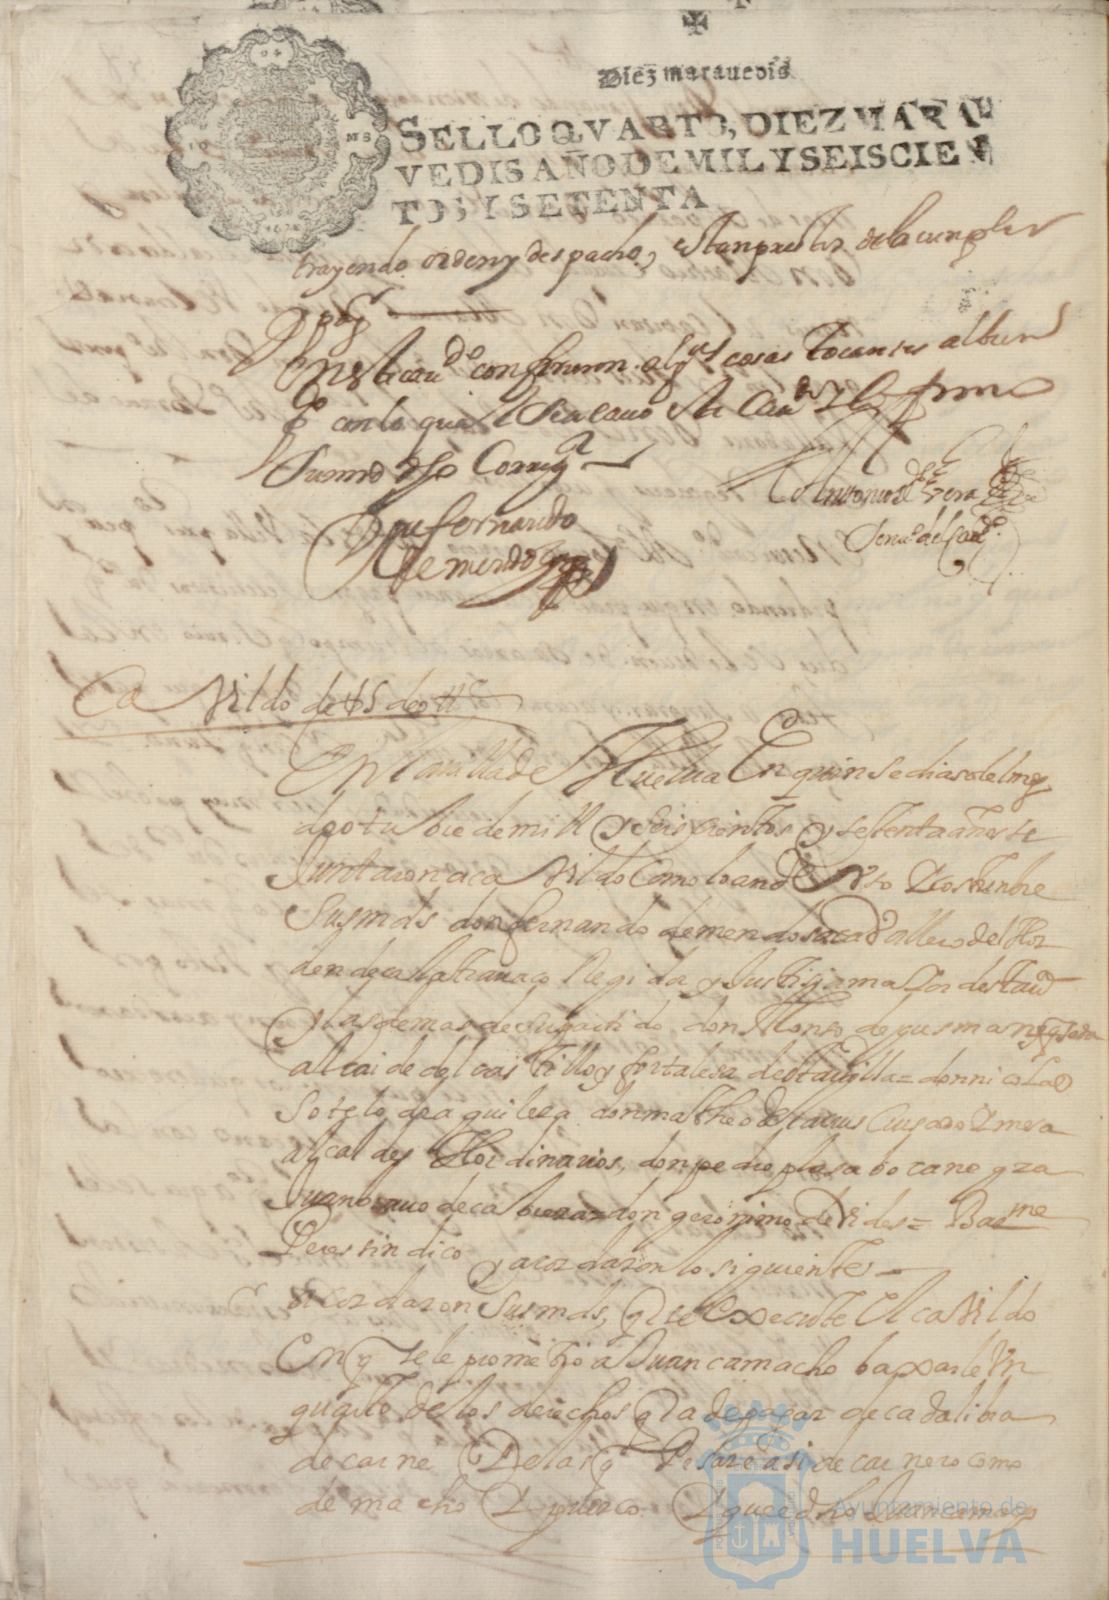 Diez marauedis
SELLO QVARTO, DIEZ MARAV
VEDIS AÑO DE MIL Y SEISCIEN
TOS Y SETENTA
trayendo orden y despacho, estan prestos de la cumplir
En este caudo confirieron algs cosas tocantes al buen
con lo qual se acauo este Caudo y lo firmo
Su md del so Corregr
Don fernando
de mendoza
Antonio de Vera
SenO del Caudo
Ca Vildo de 15 de ott
En la villa de Huelua En quinse dias del mes
de otubre de mill y seis sientos y setenta años se
Juntaron a ca Vildo Como lo an de Vso y Costunbre
Sus mds don fernando de mendosa cauallero del Hor
den de calatraua Co Regidor y Justisia maior desta Va
y las demas de su partido don Alonso de gusman quesada
alcaide del castillo y fortalesa desta villa = don nicolas
Sotelo de aguilera don matheo de
alcaldes Hordinarios, don pedro plasa bocanegra
Juan brauo de cabrera = don geronimo de Vides = Barme
Peres sindico y acordaron lo siguiente
acordaron sus mds, q se Execute El caVildo
En q se le prometio a Juan camacho baxarle Un
quarto de los derechos q a de pagar de cada libra
de carne De las q Pesare asi de carnero como
de macho y puerco. y que el dho Juan camacho
Ayuntamiento de
HUELVA